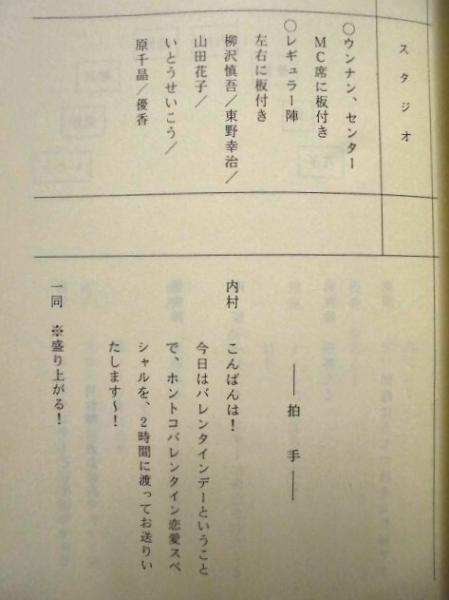 スタジオ
○ウンナン、センター
MC席に板付き
○レギュラー陣
左右に板付き
柳沢慎吾/東野幸治/
山田花子/
いとうせいこう/
原千晶/優香
――拍 手――
内村 こんばんは!
今日はバレンタインデーということ
で、ホントコバレンタイン恋愛スペ
シャルを、2時間に渡ってお送りい
たします〜!
一同 ※盛り上がる!